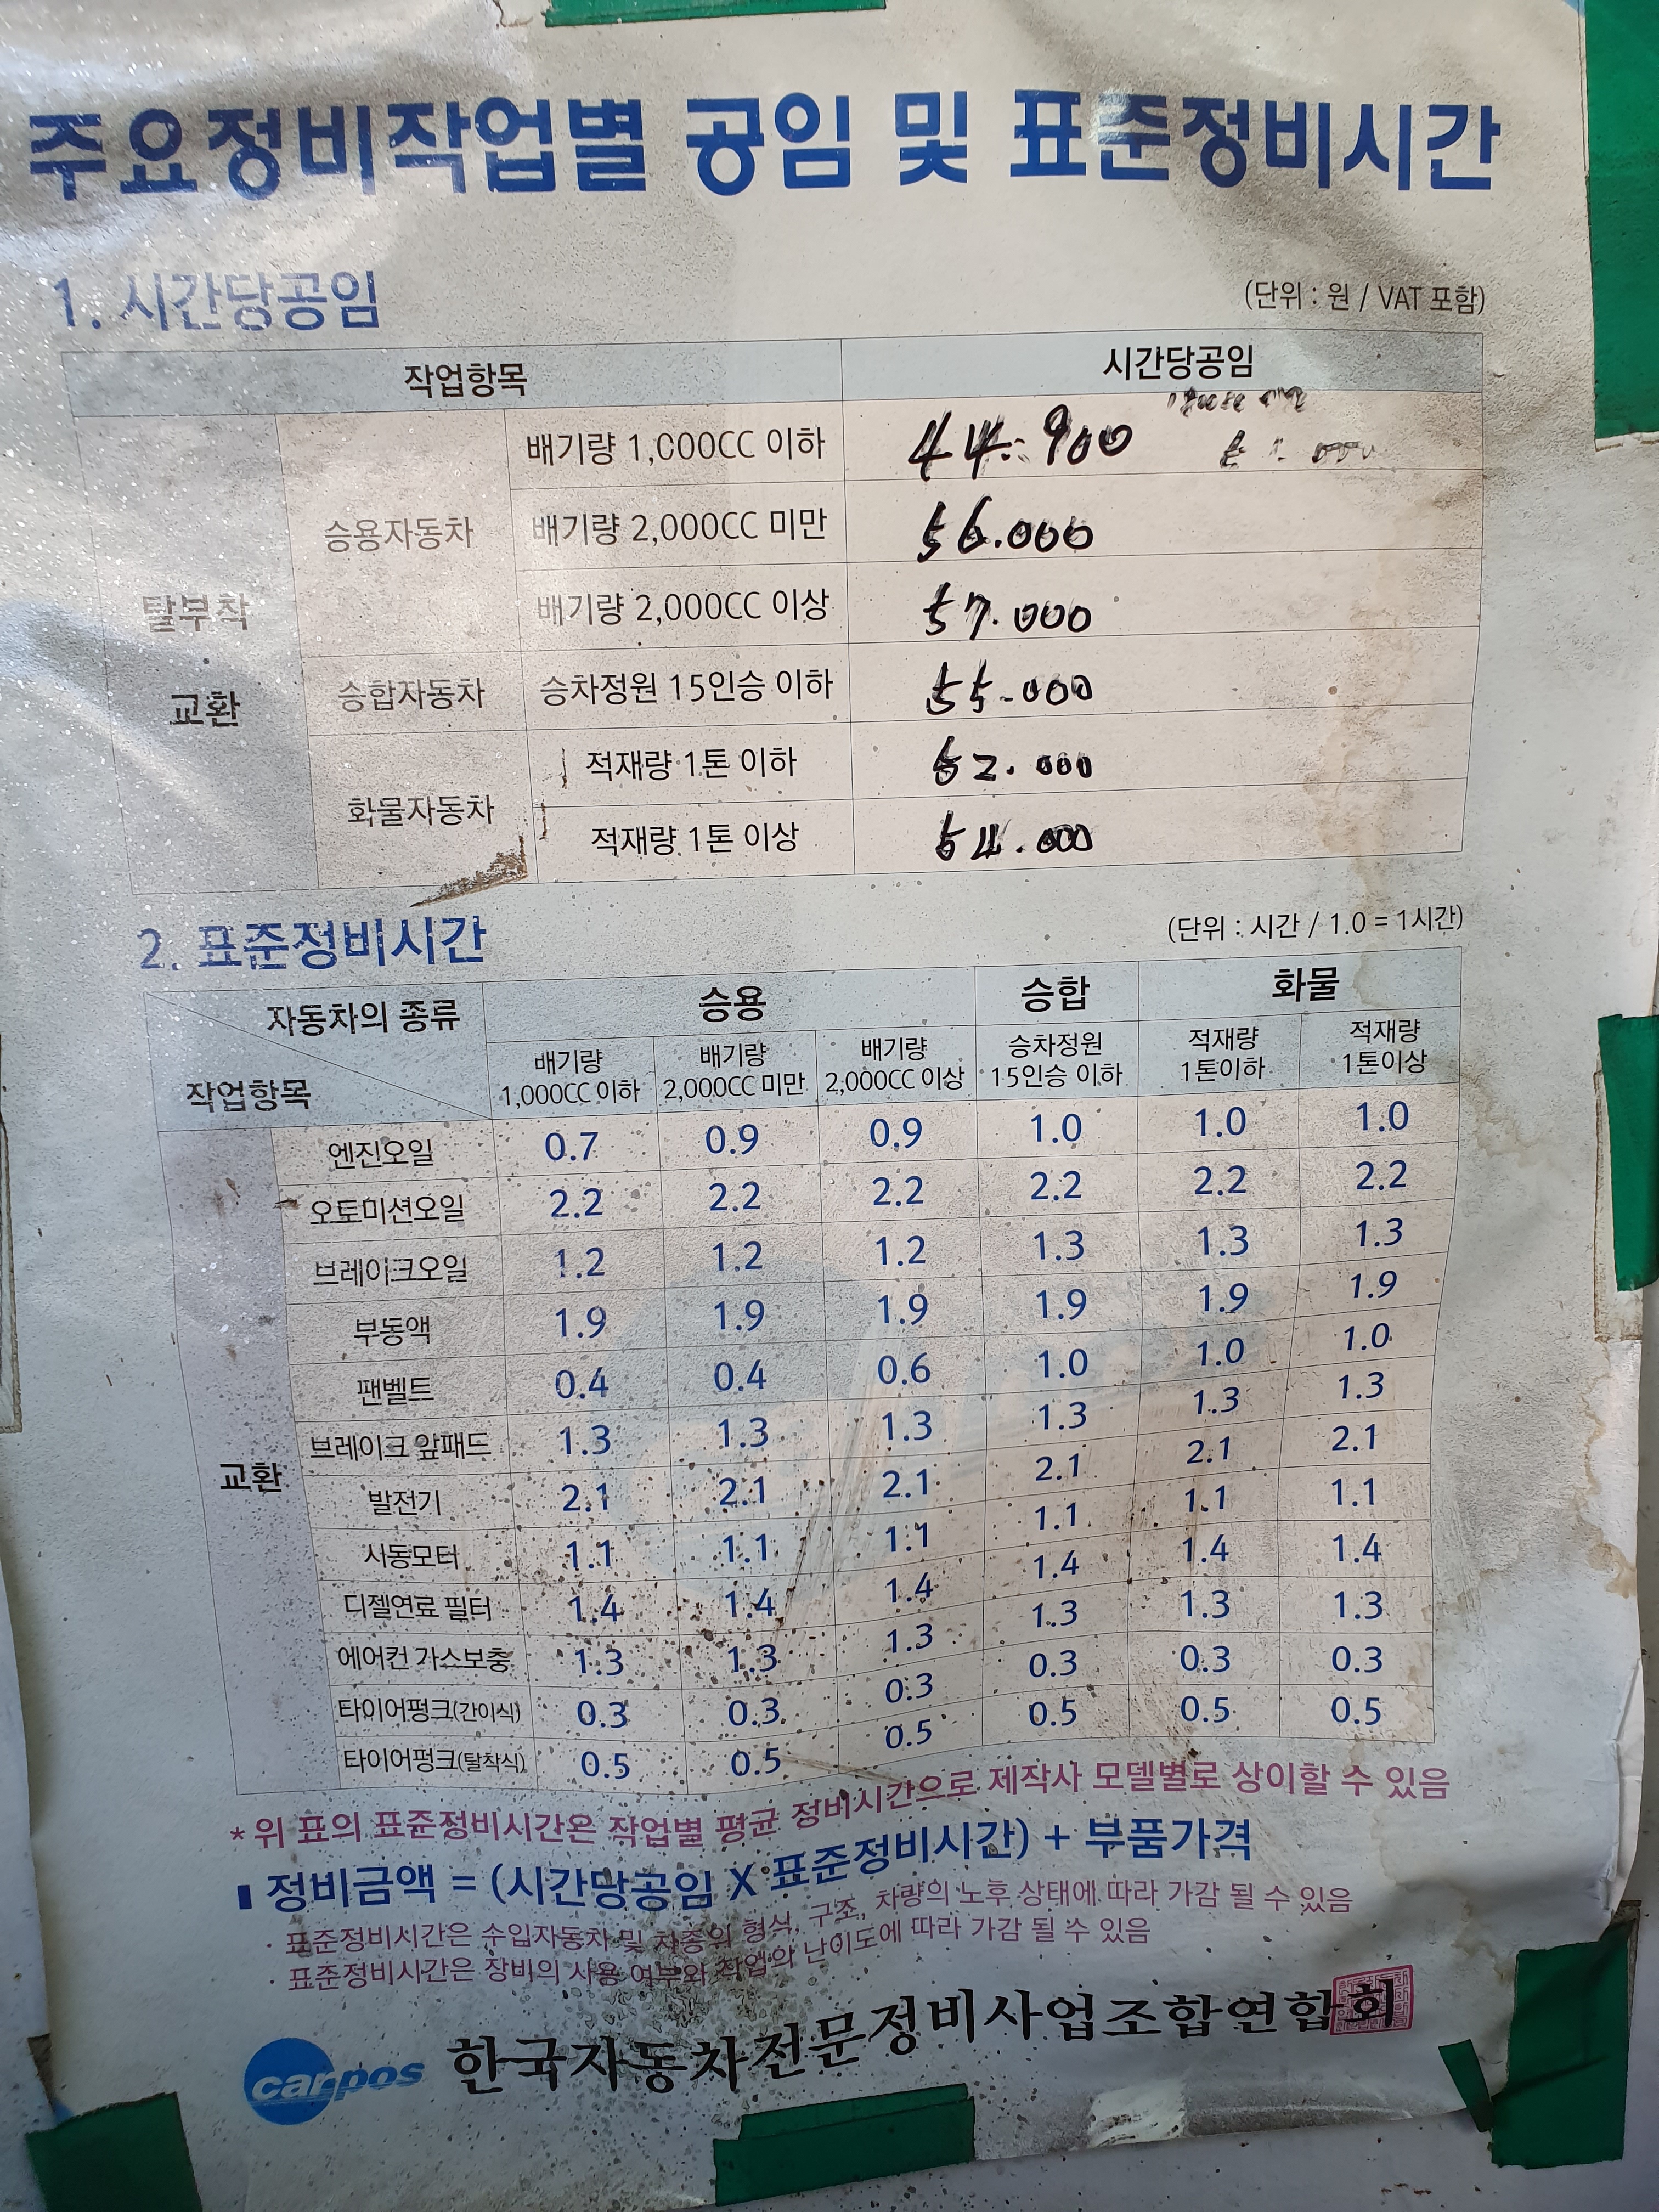 주요정비작업별 공임 및 표준정비시간
1. 시간당공임
(단위 : 원 / VAT 포함)
작업항목 시간당공임
탈부착 · 교환
승용자동차
배기량 1,000CC 이하 44.900
배기량 2,000CC 미만 56.000
배기량 2,000CC 이상 57.000
승합자동차 승차정원 15인승 이하 55-000
화물자동차
적재량 1톤 이하 52.000
적재량 1톤 이상 54.000
2. 표준정비시간
(단위 : 시간 / 1.0 = 1시간)
자동차의 종류 승용 승합 화물
작업항목
배기량 1,000CC 이하 배기량 2,000CC 미만 배기량 2,000CC 이상 승차정원 15인승 이하 적재량 1톤이하 적재량 1톤이상
교환
엔진오일 0.7 0.9 0.9 1.0 1.0 1.0
오토미션오일 2.2 2.2 2.2 2.2 2.2 2.2
브레이크오일 1.2 1.2 1.2 1.3 1.3 1.3
부동액 1.9 1.9 1.9 1.9 1.9 1.9
팬벨트 0.4 0.4 0.6 1.0 1.0 1.0
브레이크 앞패드 1.3 1.3 1.3 1.3 1.3 1.3
발전기 2.1 2.1 2.1 2.1 2.1 2.1
시동모터 1.1 1.1 1.1 1.1 1.1 1.1
디젤연료 필터 1.4 1.4 1.4 1.4 1.4 1.4
에어컨 가스보충 1.3 1.3 1.3 1.3 1.3 1.3
타이어펑크(간이식) 0.3 0.3 0.3 0.3 0.3 0.3
타이어펑크(탈착식) 0.5 0.5 0.5 0.5 0.5 0.5
* 위 표의 표준정비시간은 작업별 평균 정비시간으로 제작사 모델별로 상이할 수 있음
정비금액 = (시간당공임 X 표준정비시간) + 부품가격
· 표준정비시간은 수입자동차 및 차종의 형식, 구조, 차량의 노후 상태에 따라 가감 될 수 있음
· 표준정비시간은 장비의 사용 여부와 작업의 난이도에 따라 가감 될 수 있음
carpos 한국자동차전문정비사업조합연합회